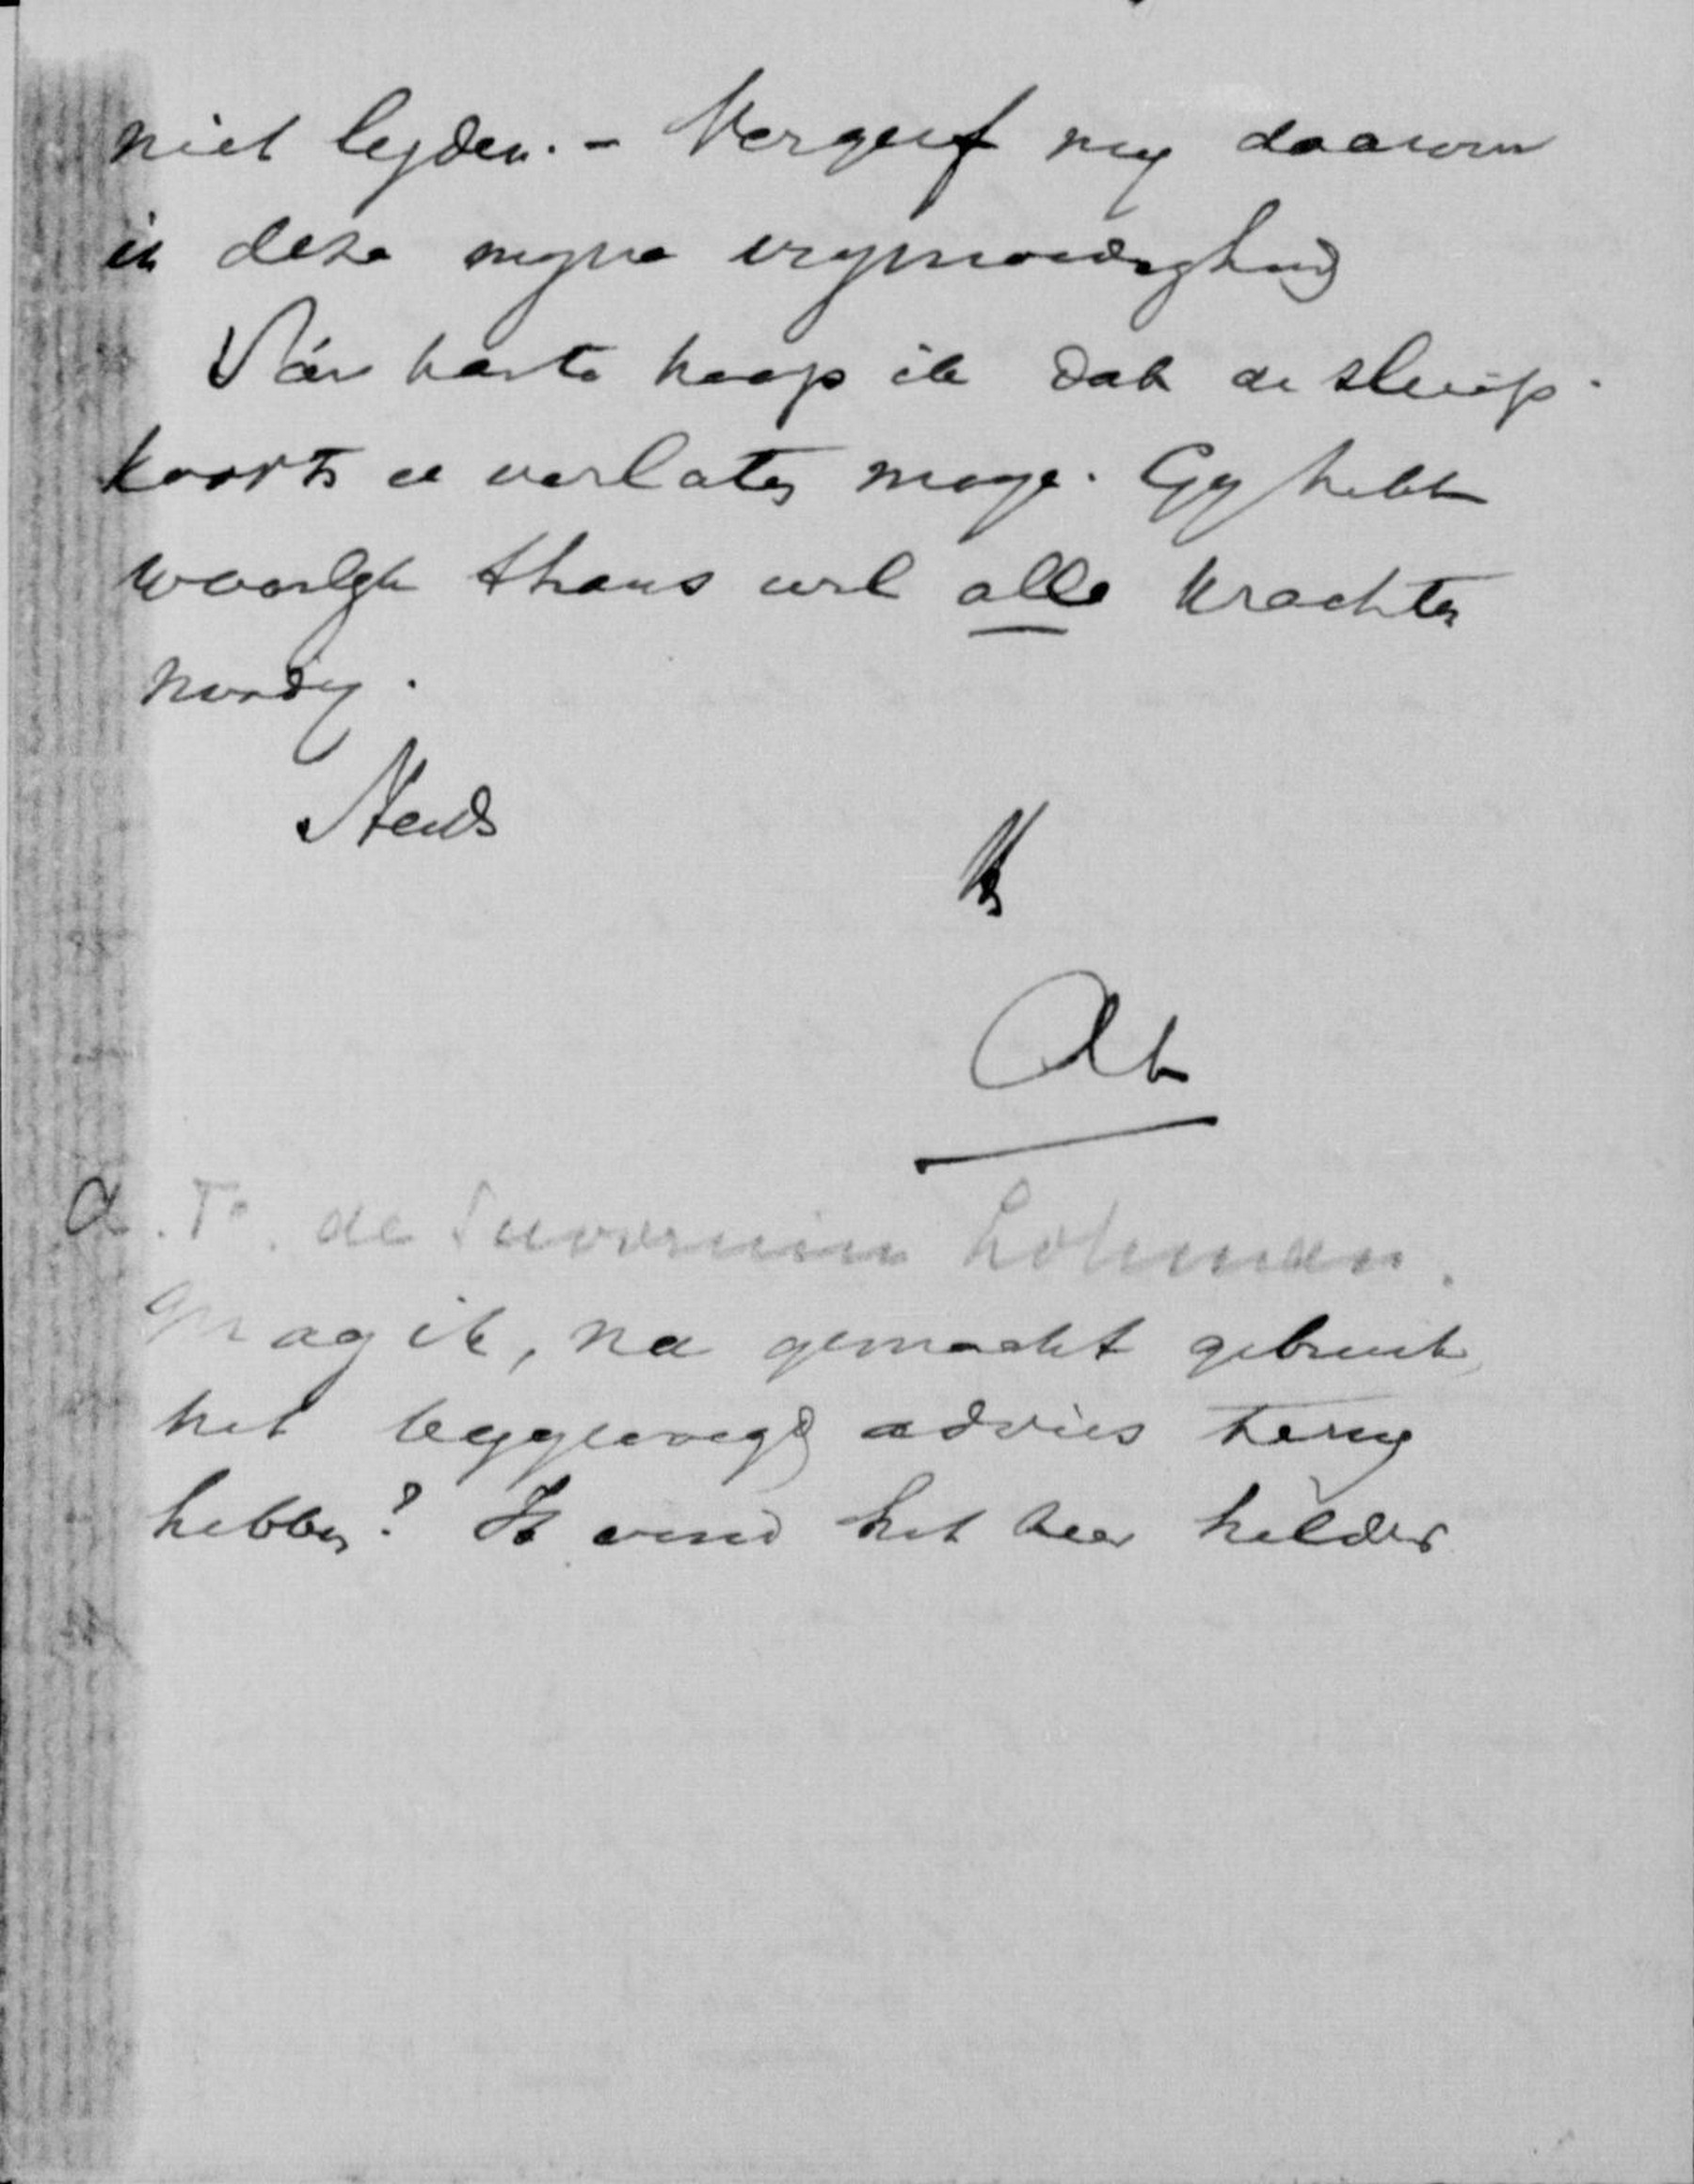 niet lyden. - Vergeef my daarom
in deze myne vrymoedigheid
Van harte hoop ik dat de sluip-
koorts u verlaten moge. Gy hebt
waarlyk thans wel alle krachten
noodig.
Steeds
AL
a. F. de Savornin Lohman.
Mag ik, na gemaakt gebruik,
het bygevoegd advies terug
hebben? Ik vind het zeer helder